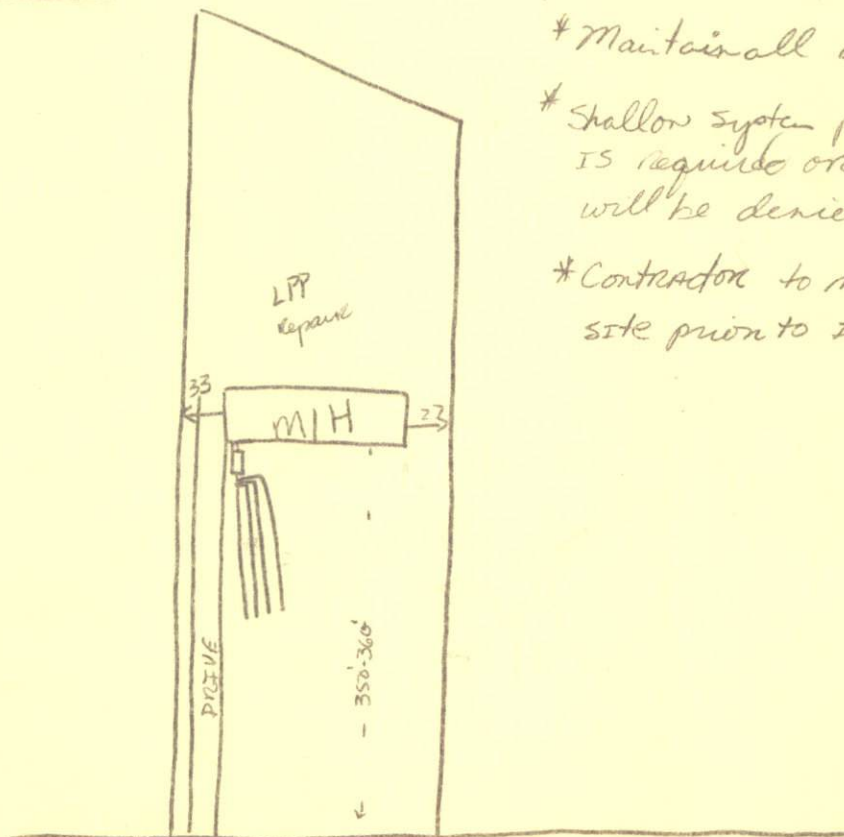 * Maintain all
* Shallow system
IS required or
will be denie
* Contractor to
site prior to
LPP
repair
33
M/H
23
DRIVE
350-360'